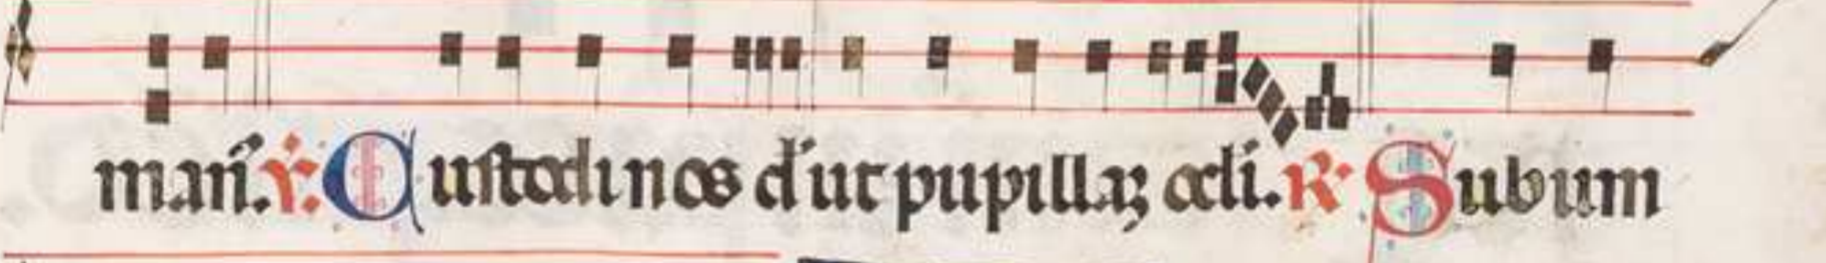 mari. ℣. Custodi nos d̄ ut pupillaꝫ ocli. ℟ Sub um